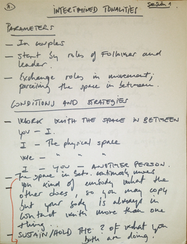 INTERTWINED TONALITIES
PARAMETERS
- In couples
- Start by roles of follower and leader.
- Exchange roles in movement, perceiving the space in between.
CONDITIONS AND STRATEGIES
- WORK WITH THE SPACE IN BETWEEN
you - I.
I - The physical space
we - " "
I - you - ANOTHER PERSON.
- The space in betw.
you kind of embody what the
other does, so u may copy
but your body is always in
contact with more than one
thing...
- SUSTAIN/HOLD THE ? of what you
both are doing.